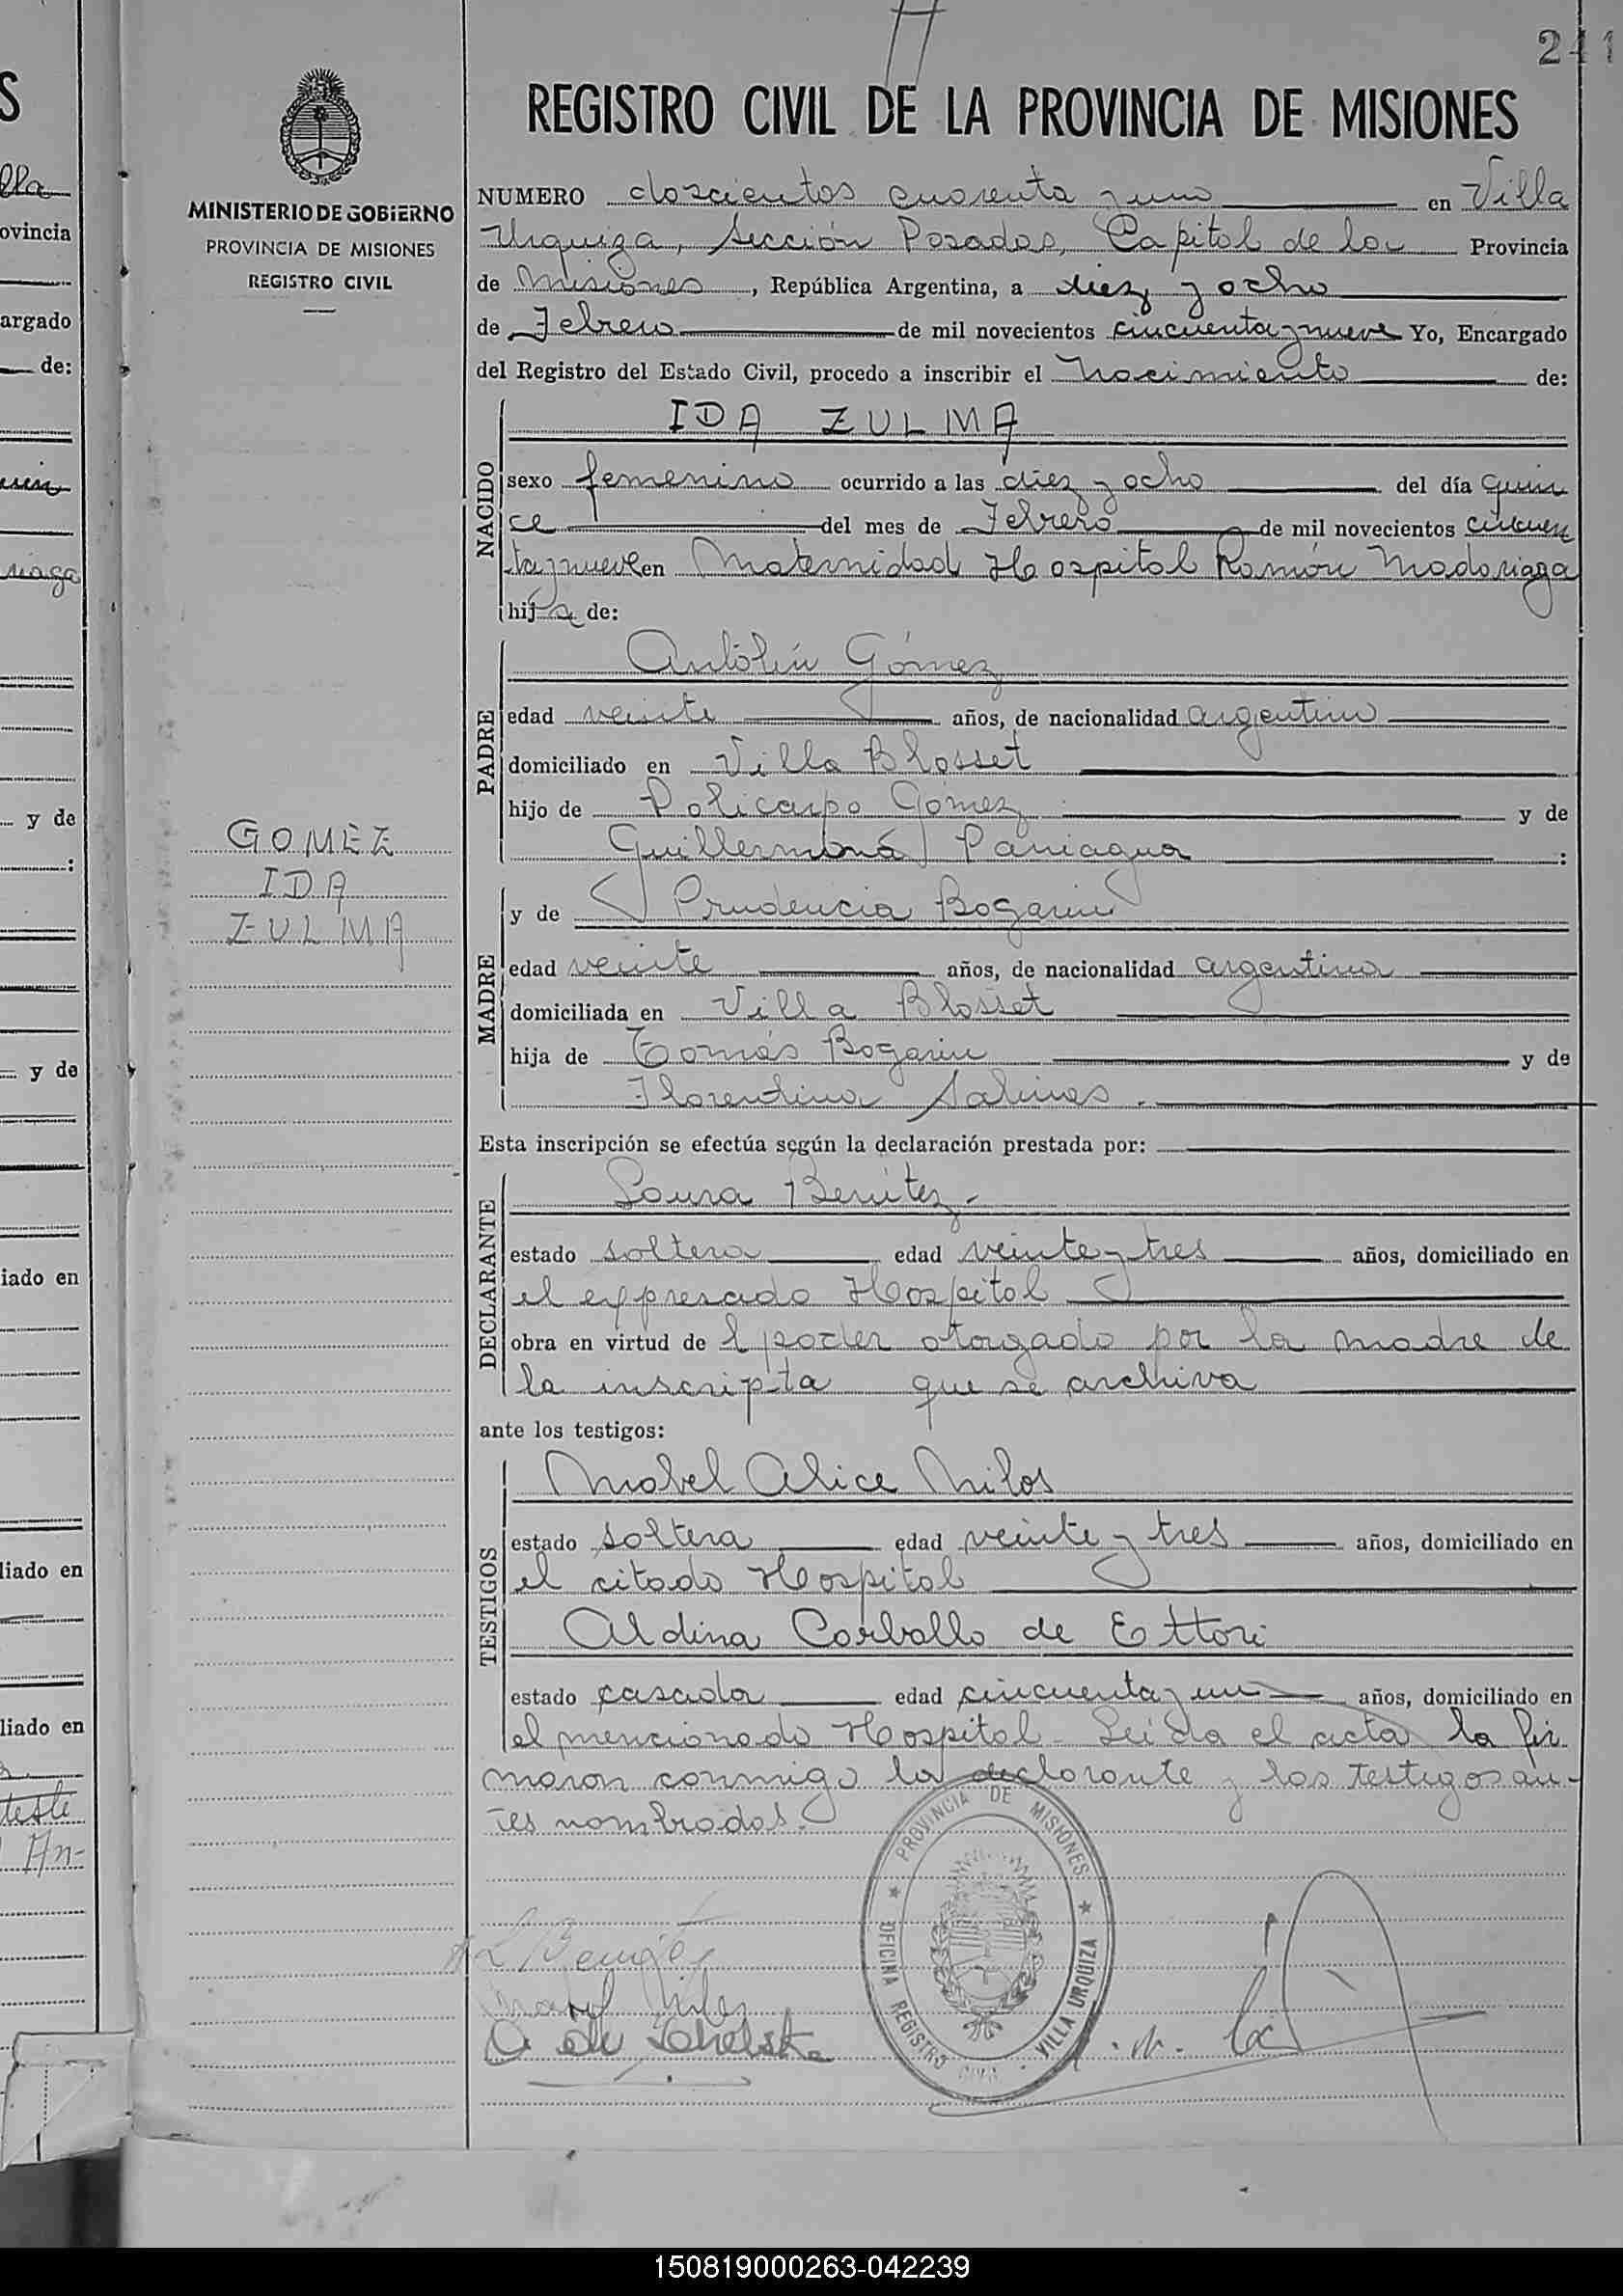 241
REGISTRO CIVIL DE LA PROVINCIA DE MISIONES
MINISTERIO DE GOBIERNO
PROVINCIA DE MISIONES
REGISTRO CIVIL
NUMERO doscientos cuarenta y uno en Villa
Urquiza, Sección Posadas, Capital de la Provincia
de Misiones, República Argentina, a diez y ocho
de Febrero de mil novecientos cincuenta y nueve Yo, Encargado
del Registro del Estado Civil, procedo a inscribir el Nacimiento de:
NACIDO
IDA ZULMA
sexo femenino ocurrido a las diez y ocho del día quin
ce del mes de Febrero de mil novecientos cincuen
ta y nueve en Maternidad Hospital Ramón Madariaga
hija de:
PADRE
Antolín Gómez
edad veinte años, de nacionalidad argentino
domiciliado en Villa Blosset
hijo de Policarpo Gómez y de
Guillermina Paniagua :
GOMEZ
IDA
ZULMA
MADRE
y de Prudencia Bogarin
edad veinte años, de nacionalidad argentina
domiciliada en Villa Blosset
hija de Tomás Bogarin y de
Florentina Salinas.
Esta inscripción se efectúa según la declaración prestada por:
DECLARANTE
Laura Benitez.-
estado soltera edad veinte y tres años, domiciliado en
el expresado Hospital
obra en virtud de l poder otorgado por la madre de
la inscripta que se archiva
ante los testigos:
TESTIGOS
Mabel Alice Milos
estado soltera edad veinte y tres años, domiciliado en
el citado Hospital
Aldina Carballo de Ettori
estado casada edad cincuenta y un años, domiciliado en
el mencionado Hospital - Leída el acta la fir
maron conmigo la declarante y los testigos an-
tes nombrados.
L Benitez
PROVINCIA DE MISIONES
OFICINA REGISTRO CIVIL · VILLA URQUIZA
lla
ovincia
argado
de:
riaga
y de
:
y de
iado en
liado en
liado en
teste
An-
150819000263-042239